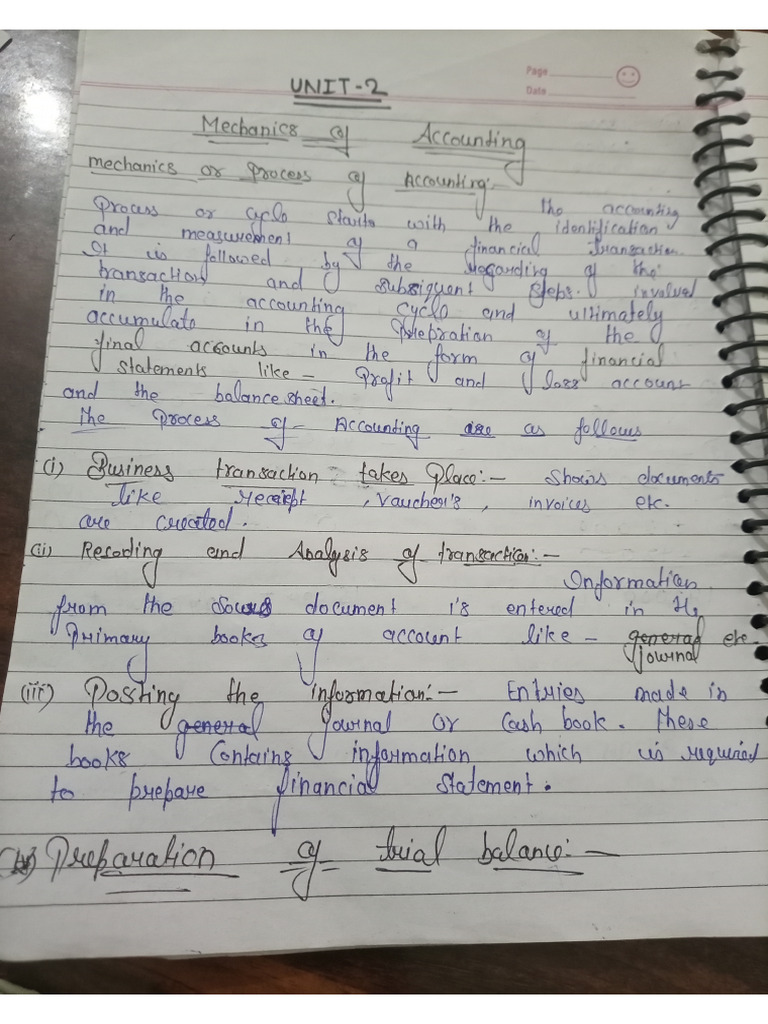 Page
Date
UNIT-2
Mechanics of Accounting
mechanics or Process of Accounting:-
The accounting
Process or cycle starts with the identification
and measurement of a financial transaction.
It is followed by the regarding of the
transaction and subsiquent steps. involved
in the accounting cycle and ultimately
accumulate in the prepration of the
final accounts in the form of financial
statements like - Profit and loss account
and the balance sheet.
The Process of Accounting are as follows
(i) Business transaction takes place:- Shows documents
like receipt, Vaucher's, invoices etc.
are created.
(ii) Recoding and Analysis of transaction:-
Information
from the document is entered in the
Primary books of account like - general etc.
Journal
(iii) Posting the information:- Entries made in
the general Journal or Cash book. These
books Contains information which is required
to prepare financial statement.
Preparation of trial balance:-